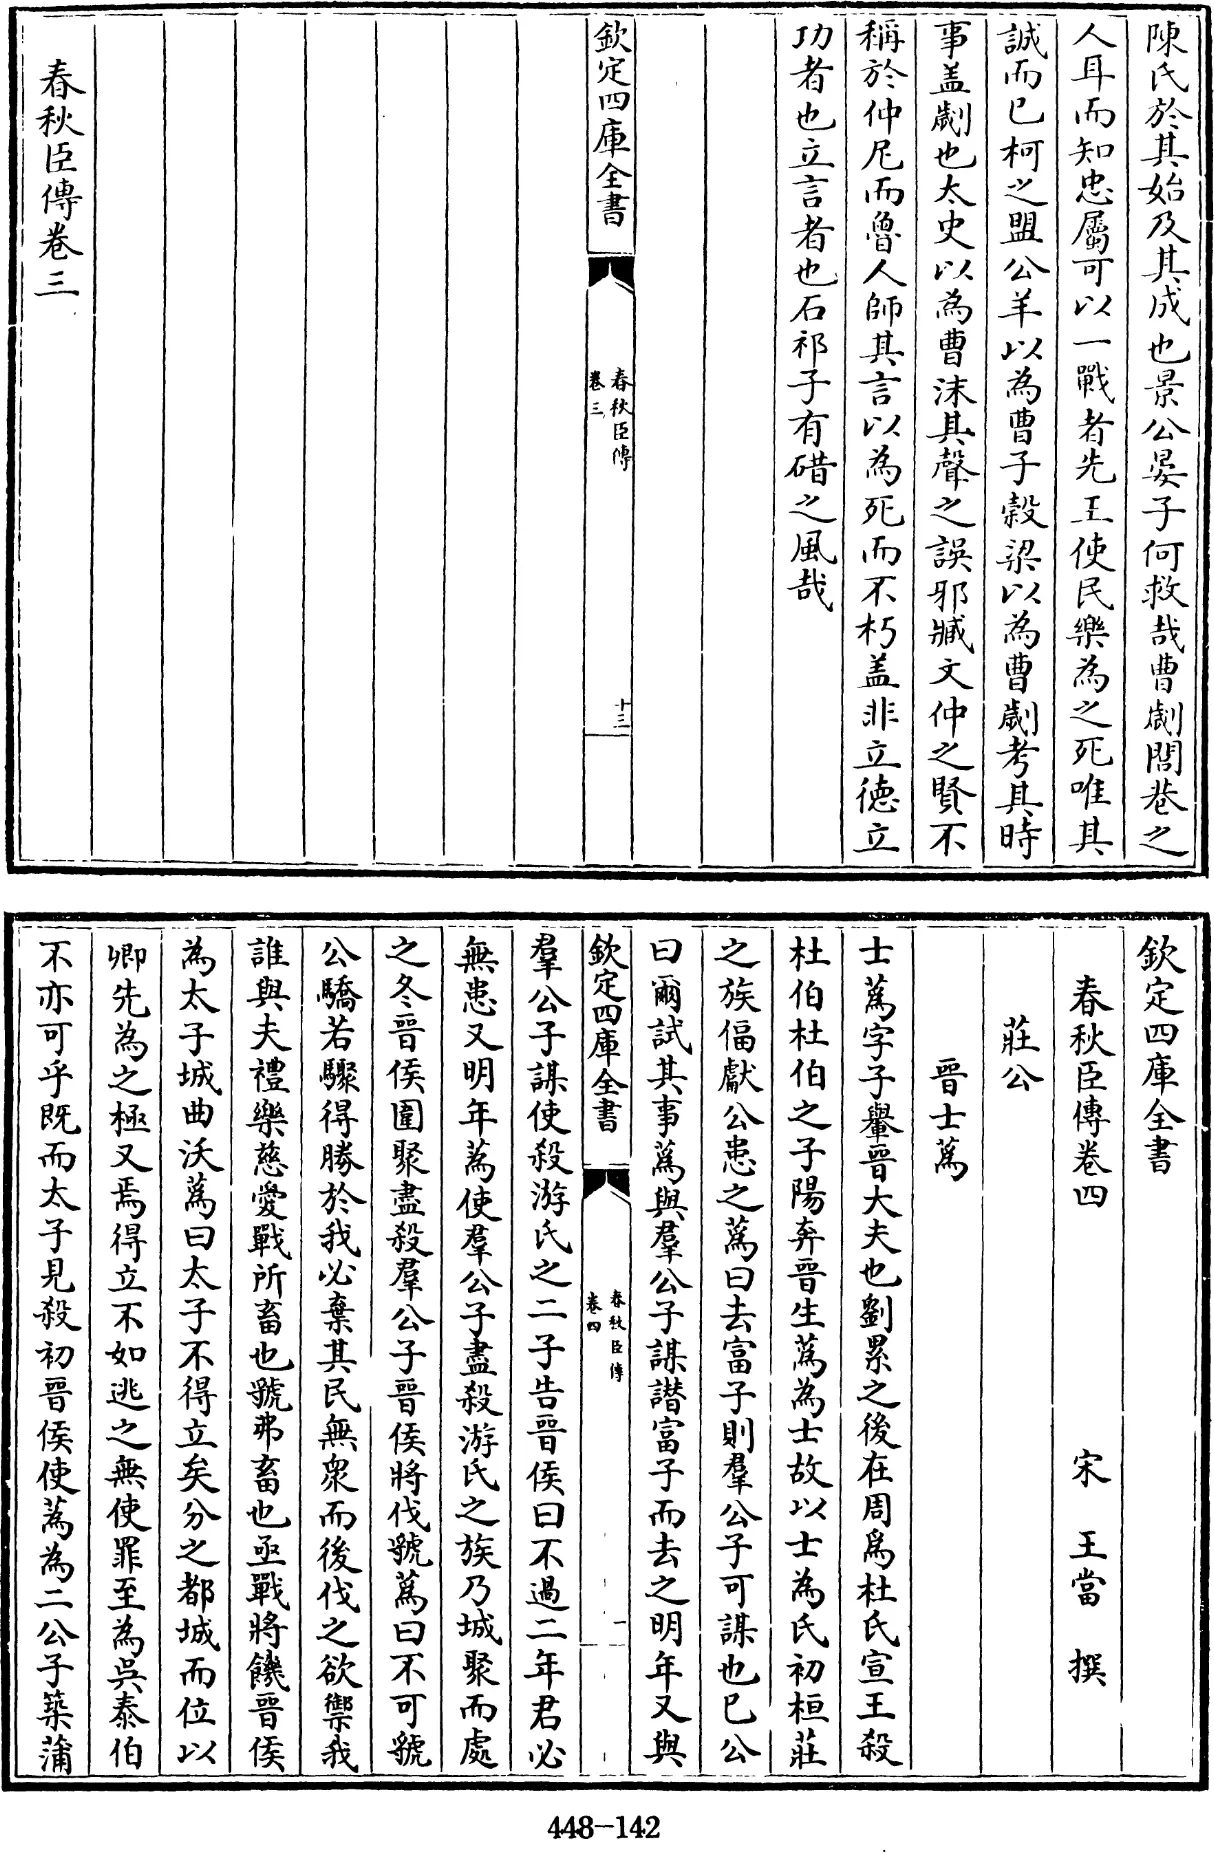 陳氏於其始及其成也景公晏子何救哉曹劌閭巷之
人耳而知忠屬可以一戰者先王使民樂為之死唯其
誠而已柯之盟公羊以為曹子穀梁以為曹劌考其時
事盖劌也太史以為曹沫其聲之誤邪臧文仲之賢不
稱於仲尼而魯人師其言以為死而不朽盖非立徳立
功者也立言者也石祁子有碏之風哉
欽定四庫全書
春秋臣傳
卷三
十三
春秋臣傳卷三
欽定四庫全書
春秋臣傳卷四
宋 王當 撰
莊公
晉士蔿
士蔿字子輿晉大夫也劉累之後在周爲杜氏宣王殺
杜伯杜伯之子隰奔晉生蔿為士故以士為氏初桓莊
之族偪獻公患之蔿曰去富子則羣公子可謀也已公
曰爾試其事蔿與羣公子謀譖富子而去之明年又與
羣公子謀使殺游氏之二子告晉侯曰不過二年君必
欽定四庫全書
春秋臣傳
卷四
一
無患又明年蔿使羣公子盡殺游氏之族乃城聚而處
之冬晉侯圍聚盡殺羣公子晉侯將伐虢蔿曰不可虢
公驕若驟得勝於我必棄其民無衆而後伐之欲禦我
誰與夫禮樂慈愛戰所畜也虢弗畜也亟戰將饑晉侯
為太子城曲沃蔿曰太子不得立矣分之都城而位以
卿先為之極又焉得立不如逃之無使罪至為吳泰伯
不亦可乎既而太子見殺初晉侯使蔿為二公子築蒲
448-142